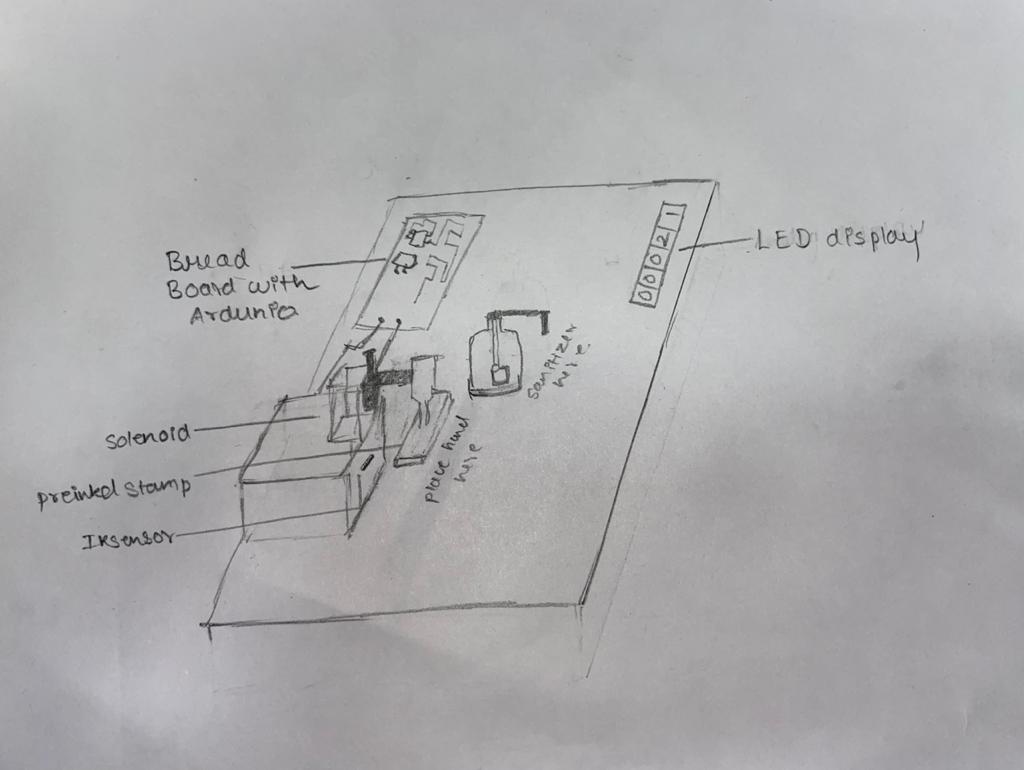 Bread
Board with
Ardunio
LED display
00021
sanitizer
here
solenoid
place hand
here
preinked stamp
IRsensor